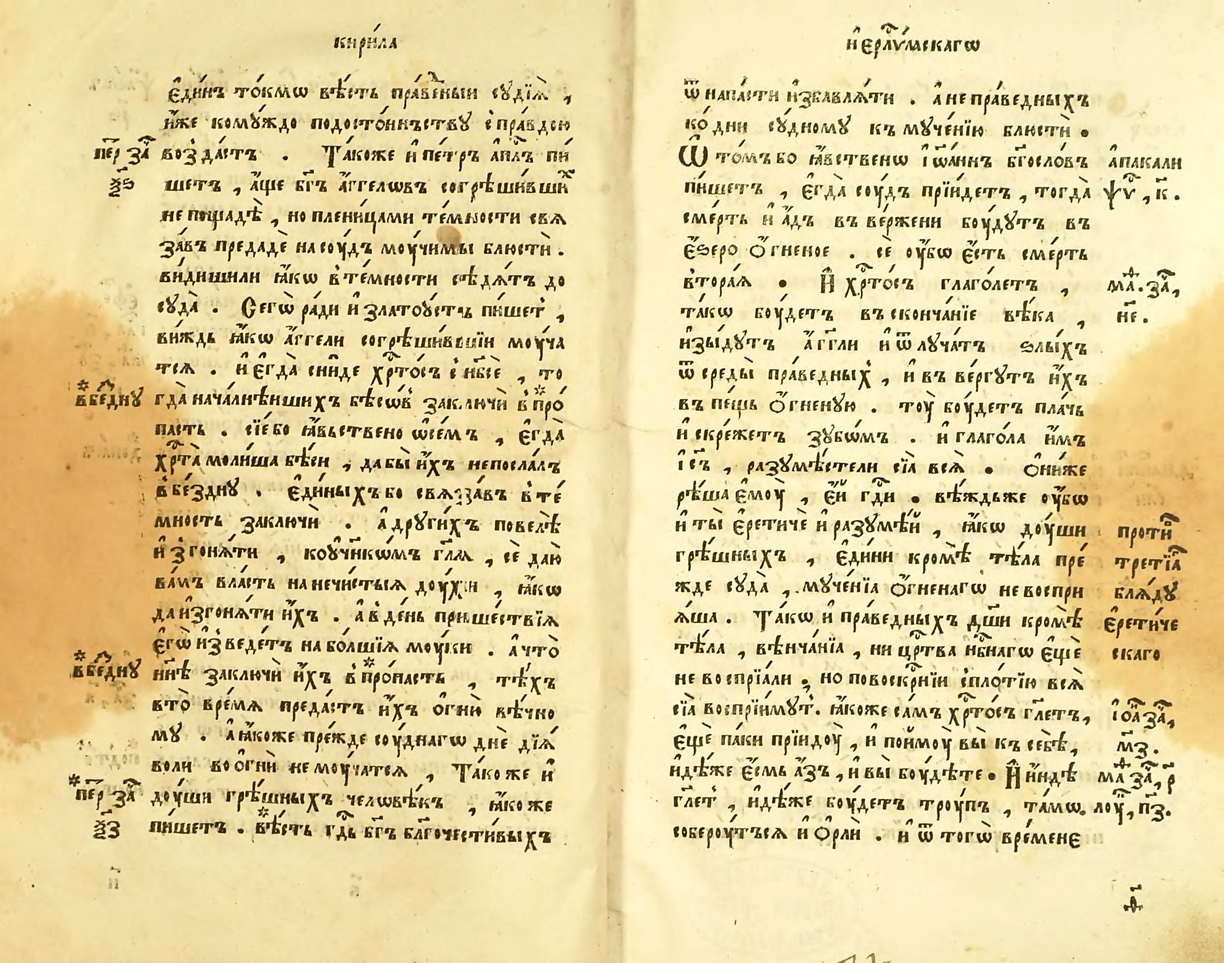 кири́ла
є҆ди́нъ то́кмѡ вѣ́сть пра́ведныи сꙋдїѧ̀ ,
и҆́же комꙋ́ждо подосто́иньствꙋ с̾пра́вдою
пе́р за҇ воз̾да́стъ . Та́коже и҆ пе́тръ а҆п҇лъ пи́
ѯ҃ѕ шетъ , а҆́ще бг҃ъ а҆́ггелѡвъ согрѣши́вшиͯ
не пощадѣ̀ , но плени́цами те́мности свѧ
за́въ предадѐ на соу́дъ моучи́мы блюстѝ .
ви́дишили ꙗ҆́кѡ в̾те́мности сѣдѧ́тъ до
сꙋда̀ . Сегѡ̀ ра́ди и҆ златоу́стъ пи́шет̾ ,
ви́ждь ꙗ҆́кѡ а҆́ггели согрѣши́вшїи моу́ча
тсѧ . и҆ є҆гда̀ сни́де хр҇то́съ с̾нб҃сѐ , то
*вбе́днꙋ гда̀ нача́лнѣишихъ бѣсѡ́в̾ заключѝ в̾*про́
пасть . сїе́ бо ꙗ҆́вьствено ѡ҆все́мъ , є҆гда̀
хр҇та̀ моли́ша бѣ́си , дабы̀ и҆́хъ непосла́лъ
в̾бе́зднꙋ . є҆ди́ныхъ бо свѧза́въ в̾те́
мность заключѝ . а҆ дрꙋги́хъ повелѣ̀
и҆з̾гонѧ́ти , коу҆чнкѡ́мъ гл҃ѧ , сѐ даю̀
ва́мъ вла́сть на нечи́стыѧ до́ухи , ꙗ҆́кѡ
да и҆згонѧ́ти и҆́хъ . а҆ в̾де́нь прише́ствїѧ
є҆гѡ̀ и҆з̾веде́тъ на бо́лшїѧ моу́ки . а҆ что̀
*вбе́днꙋ нн҃ѣ заключѝ и҆́хъ в̾*про́пасть , тѣ́хъ
в̾то̀ вре́мѧ преда́стъ и҆́хъ огню̀ вѣ́чно
мꙋ . а҆ ꙗ҆́коже пре́жде соу́днагѡ днѐ дїѧ́
воли во огнѝ не моу́чатсѧ , Та́коже и҆
*пе́р за҇ до́уши грѣ́шныхъ человѣ́къ , ꙗ҆́коже
ѯ҃з пи́шетъ . *вѣ́сть гд҇ь бг҃ъ благочести́выхъ
и҃
и҆єрл҇и́мскагѡ
ѿ напа́сти и҆збавлѧ́ти . а҆ не пра́ведныхъ
ко́ дни сꙋ́дномꙋ къ мꙋче́нїю блюстѝ .
Ѡ то́мъ бо ꙗ҆́вственѡ і҆ѡа́ннъ бг҃осло́въ а҆пакали
пи́шетъ , є҆гда̀ соу́дъ прїи́детъ , тогда̀ ѱѵ҇ , к҃ .
сме́рть и҆ а҆́дъ въ ве́ржени бо́удутъ въ
є҆́ѕеро о҆́гненое . сѐ оу҆́бѡ є҆́сть сме́рть
втора́ѧ . И҆ хр҇то́съ глаго́летъ , ма҇ . за҇ ,
та́кѡ бо́удетъ въ сконча́нїе вѣ́ка , н҃є .
и҆зы́дутъ а҆́гг҃ли и҆ ѿлуча́тъ ѕлы́хъ
ѿ среды̀ пра́ведных̾ , и҆ въ ве́ргутъ и҆́хъ
въ пе́щь о҆́гненую . тоу̀ бо́удетъ пла́чь
и҆ скре́жетъ зꙋбѡ́мъ . и҆ глаго́ла и҆́мъ
і҆с҃ъ , разꙋмѣ́стели сїѧ̀ всѧ̀ . о҆ни́же
рѣ́ша є҆моу̀ , є҆́й гд҇и . вѣ́ждьже оу҆́бѡ
и҆ ты̀ є҆рети́че и҆ разꙋмѣ́й , ꙗ҆́кѡ до́уши проти҇
грѣ́шныхъ , є҆ди́ни кро́мѣ тѣ́ла пре́ трети́а҇
жде сꙋда̀ , мꙋче́нїѧ о҆́гненагѡ не воспри блѧ́дꙋ
ѧ́ша . Та́кѡ и҆ пра́ведныхъ дш҃и кро́мѣ є҆рети́че
тѣ́ла , вѣнча́нїѧ , ни цр҇тва нб҇нагѡ є҆щѐ скаго
не воспрїа́ли , но повоскр҇нїи с̾пло́тїю всѧ̀
сїѧ̀ воспрїи́мꙋт . ꙗ҆́коже са́мъ хр҇то́съ гл҃етъ , і҆оа҇ за҇ ,
є҆щѐ па́ки прїидоу̀ , и҆ поймоу̀ вы̀ къ себѣ̀ , м҃з .
и҆дѣ́же є҆́смь а҆́зъ , и҆ вы̀ бо́удѣте . И҆ и҆́ндѣ ма҇ за҇ , р
гл҃ет̾ , и҆дѣ́же бо́удетъ тро́упъ , та́мѡ . лоу҇ , п҃з .
соберо́утъсѧ и҆ о҆рлѝ . и҆ ѿ тогѡ̀ вре́мене
ѳ҃